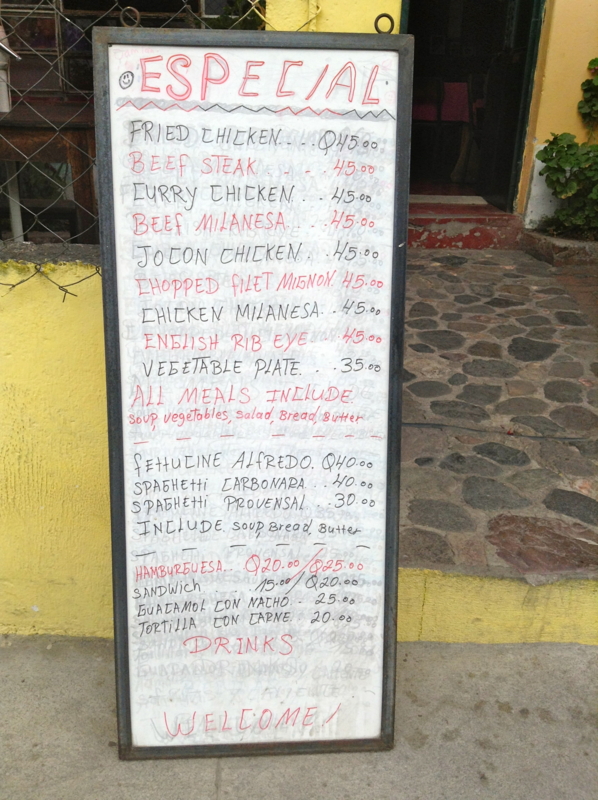 ESPECIAL
FRIED CHICKEN... Q45.00
BEEF STEAK - - . 45.00
CURRY CHICKEN . . 45.00
BEEF MILANESA . . 45.00
JOCON CHICKEN . . 45.00
CHOPPED FILET MIGNON. 45.00
CHICKEN MILANESA . 45.00
ENGLISH RIB EYE . . 45.00
VEGETABLE PLATE. . 35.00
ALL MEALS INCLUDE
Soup, vegetables, Salad, Bread, Butter
FETTUCINE ALFREDO. Q40.00
SPAGHETTI CARBONARA . . 40.00
SPAGHETTI PROVENSAL . 30.00
INCLUDE Soup, Bread, Butter
HAMBURGUESA... Q20.00/Q25.00
SANDWICH . . . . 15.00/Q20.00
GUACAMOL CON NACHO . . 25.00
TORTILLA CON CARNE . 20.00
DRINKS
WELCOME!